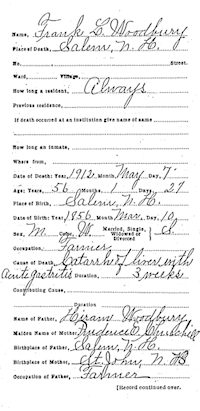 Name, Frank L. Woodbury
Place of Death, Salem, N. H.
No. Street.
Ward, Village,
How long a resident, Always
Previous residence,
If death occurred at an institution give name of same
How long an inmate,
Where from,
Date of Death: Year, 1912, Month, May Day, 7
Age: Years, 56 Months, 1 Days, 27
Place of Birth, Salem, N. H.
Date of Birth: Year, 1856 Month, Mar. Day, 10
Sex, M Color, W. Married, Single, Widowed or Divorced S.
Occupation, Farmer
Cause of Death, Catarrh of liver with
Acute gastritis Duration, 3 weeks
Contributing Cause,
Duration
Name of Father, Hiram Woodbury
Maiden Name of Mother, Prudence C. Churchill
Birthplace of Father, Salem, N. H.
Birthplace of Mother, St. John, N. B
Occupation of Father, Farmer
[Record continued over.